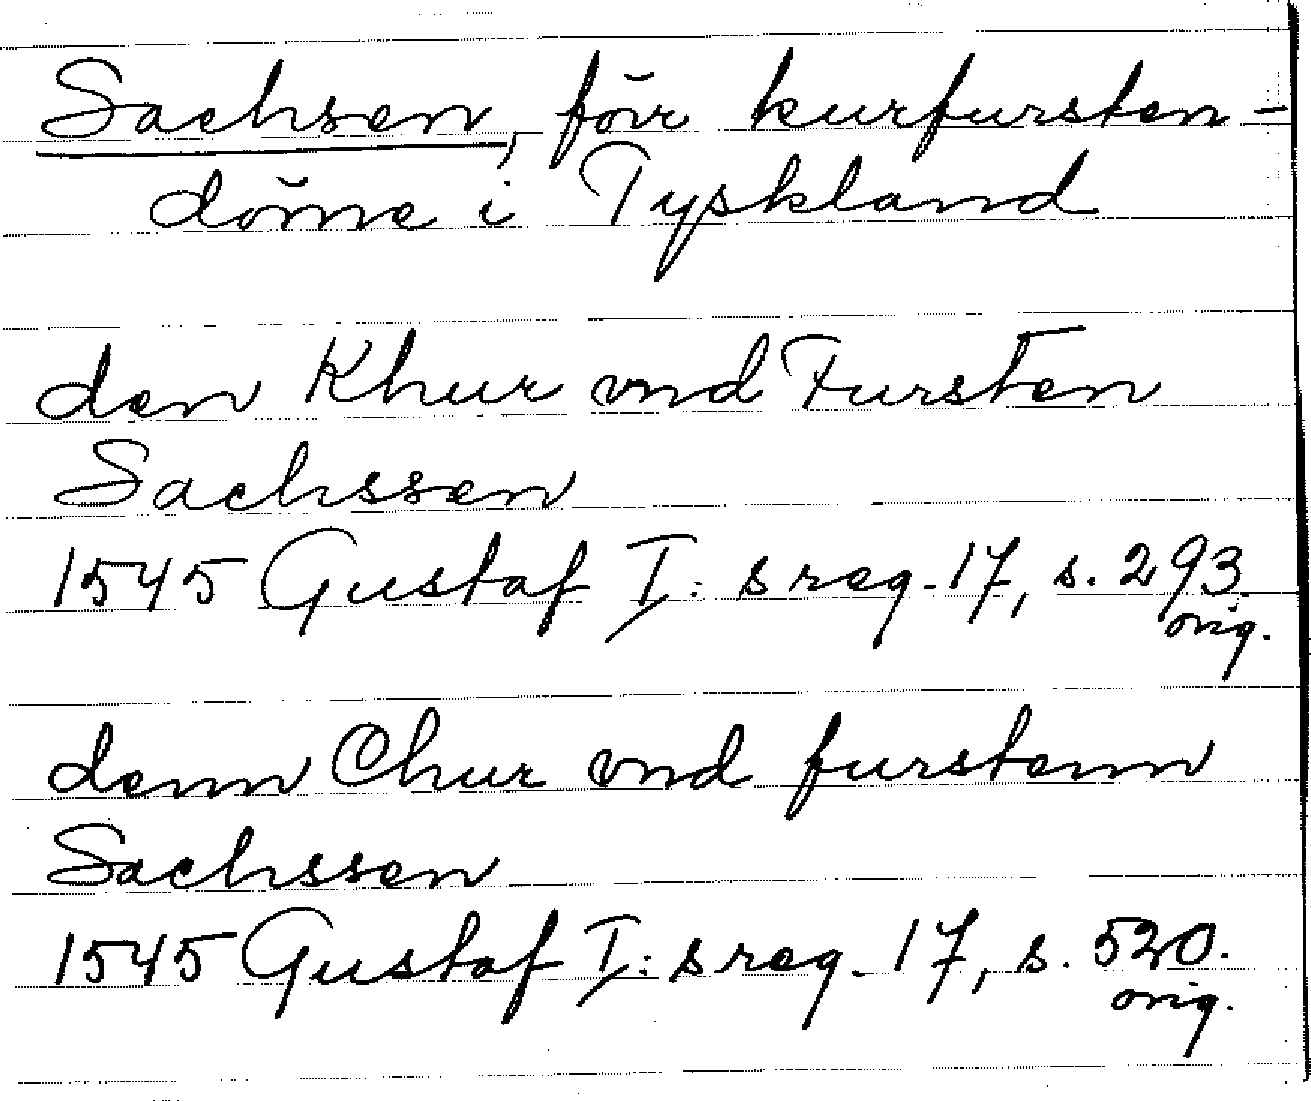 Sachsen, förr kurfursten-
döme i Tyskland
den Khur vnd Fursten
Sachssen
1545 Gustaf I: s reg. 17, s. 293.
orig.
denn Chur vnd furstenn
Sachssen
1545 Gustaf I: s reg. 17, s. 520.
orig.